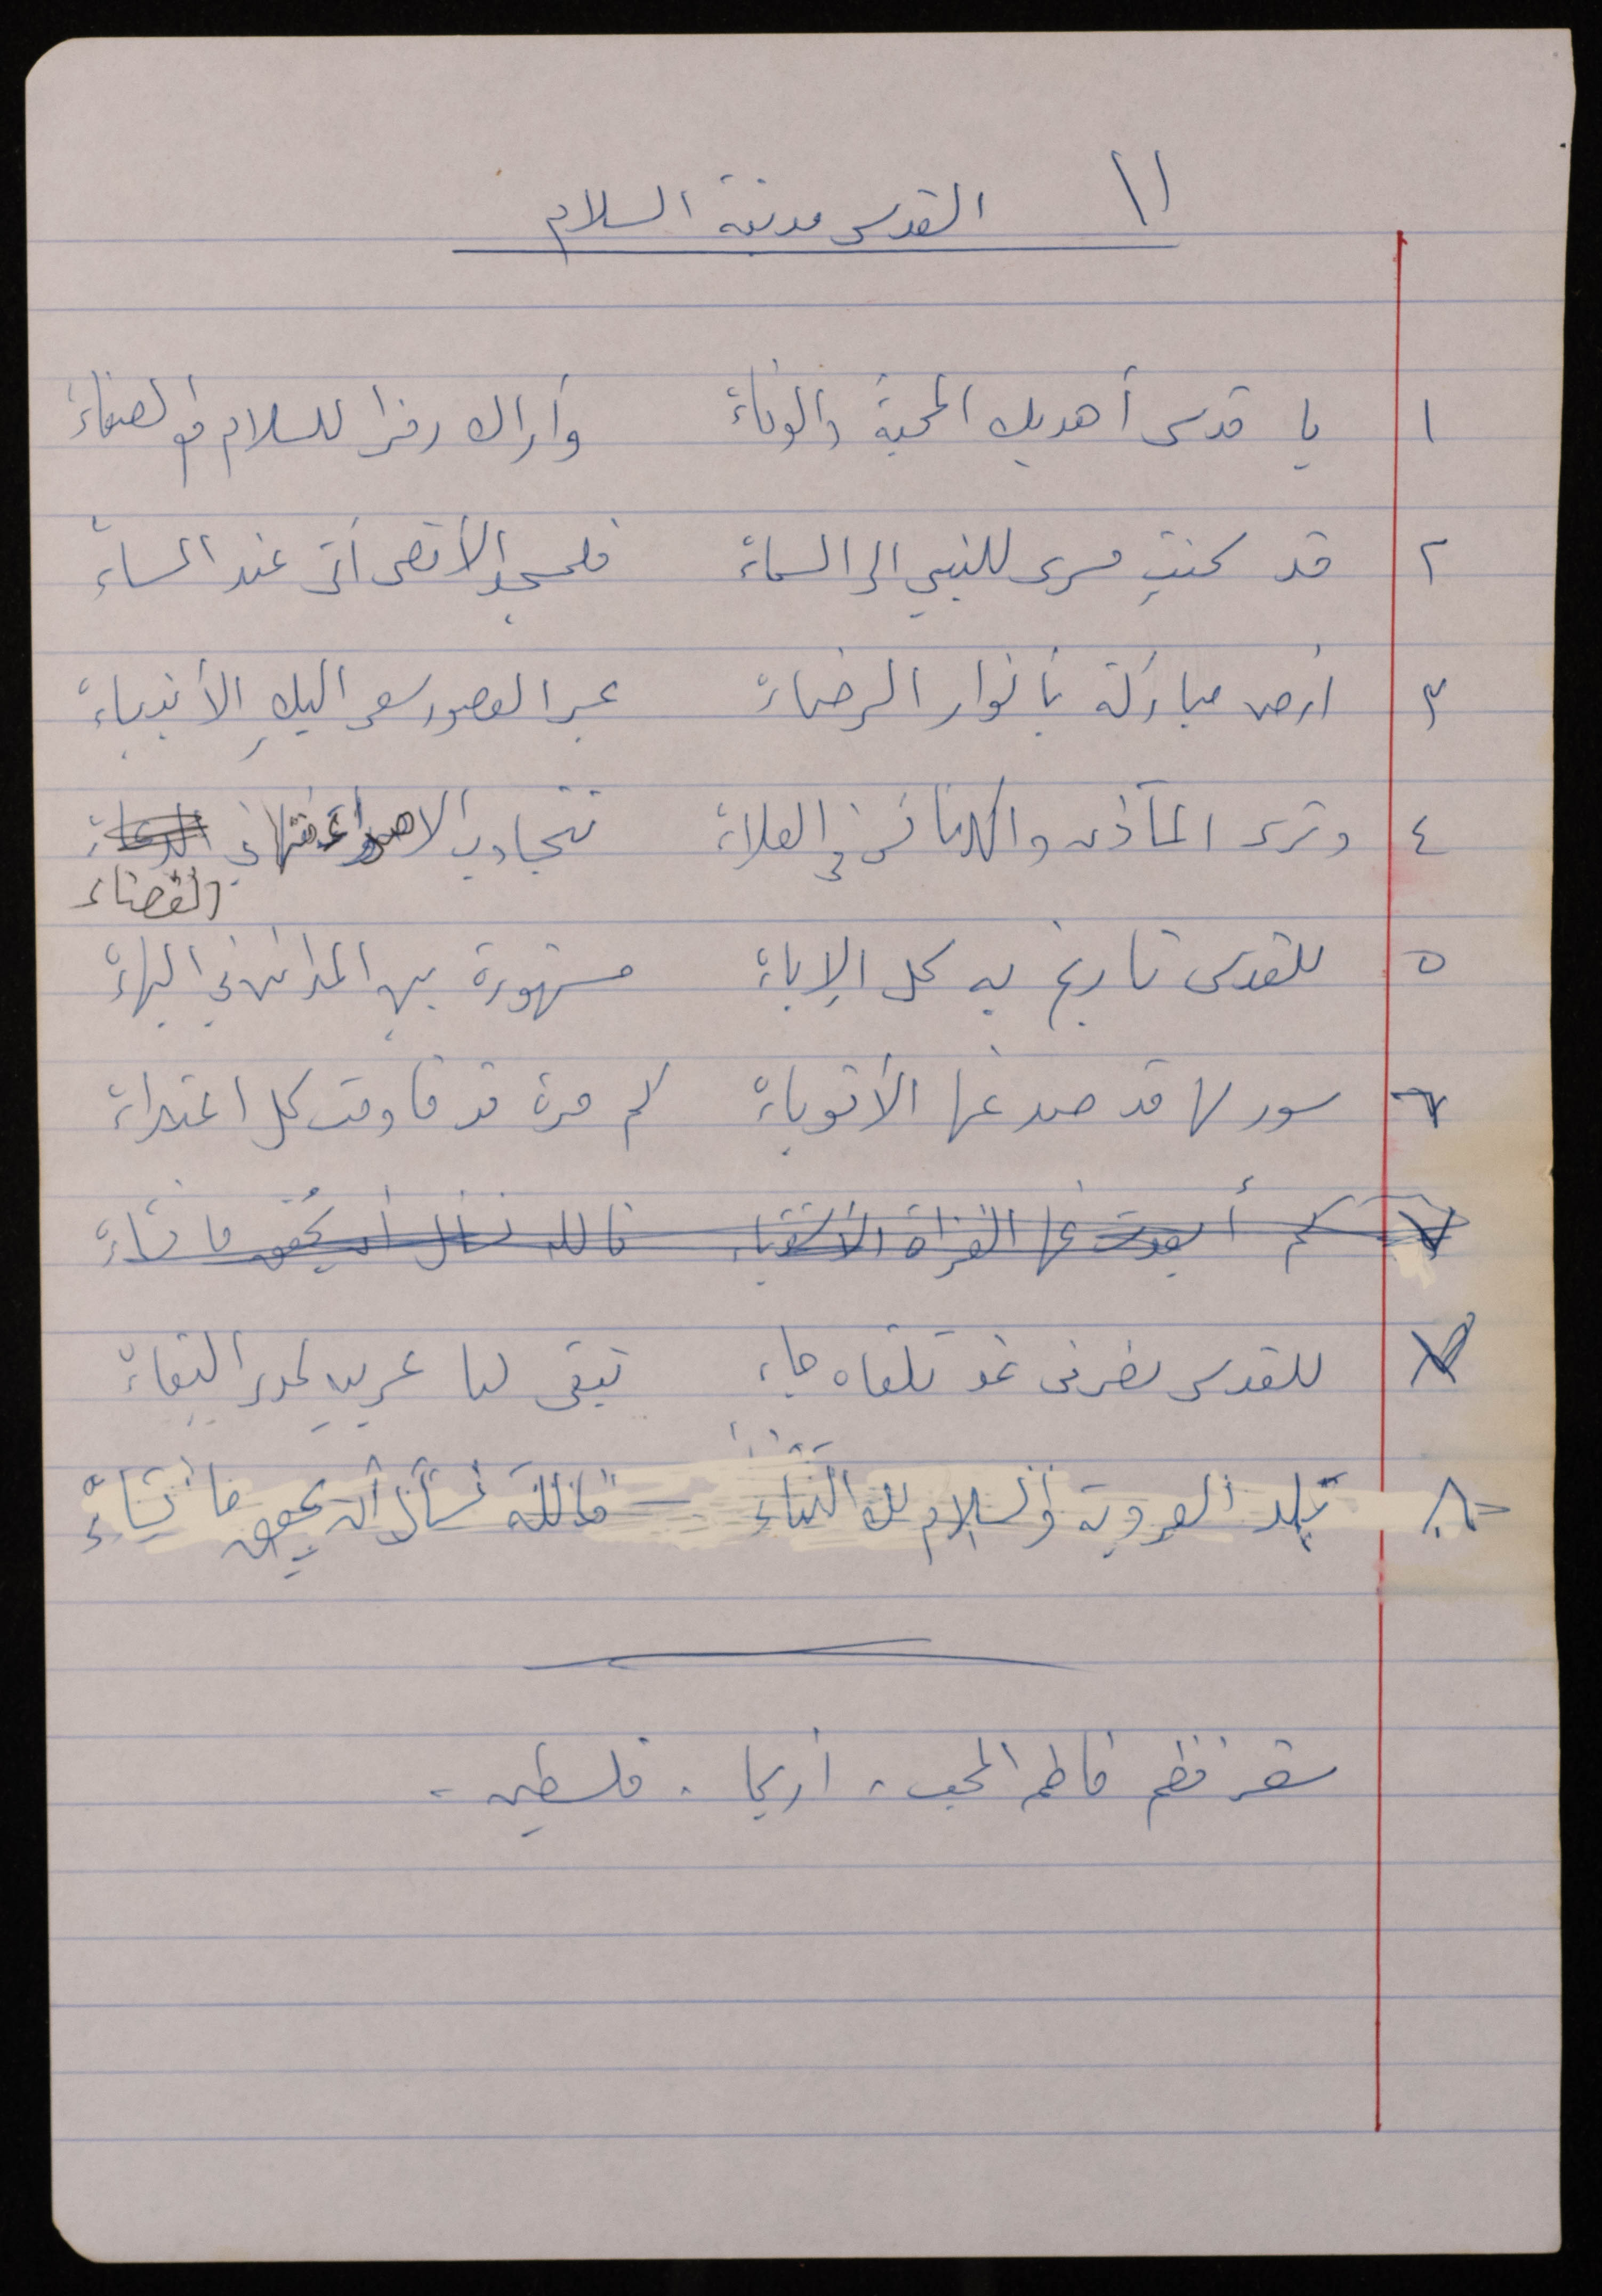 ١١ القدس مدينة السلام
١ يا قدس أهديك المحبة والوفاء وأراك رمزا للسلام مع الصفاء
٢ قد كنتِ مسرى للنبي الى السماء فلمسجد الأقصى أتى عند المساء
٣ ارض مباركة بأنوار الرضاء عبر العصور سعى اليكِ الأنبياء
٤ وترى المآذن والكنائس في العلاء تتجاوب الاصداء منها في الدعاء
الفضاء
٥ للقدس تاريخ به كل الإباء مشهورة بين المدائن في البهاء
٦ سور لها قد صد عنها الأقوياء كم مرة قد قاومت كل اعتداء
٧ كم أبعدت عنها الغزاة الأشقياء فالله نسأل أن يُحقق ما نشاء
للقدس تبقى لنا عربية البقاء
٨ بلد العروبة والسلام لك الثناء فالله نسأل أن يحقق ما نشاء
شعر نظم فاطمة المحب، أريحا. فلسطين.